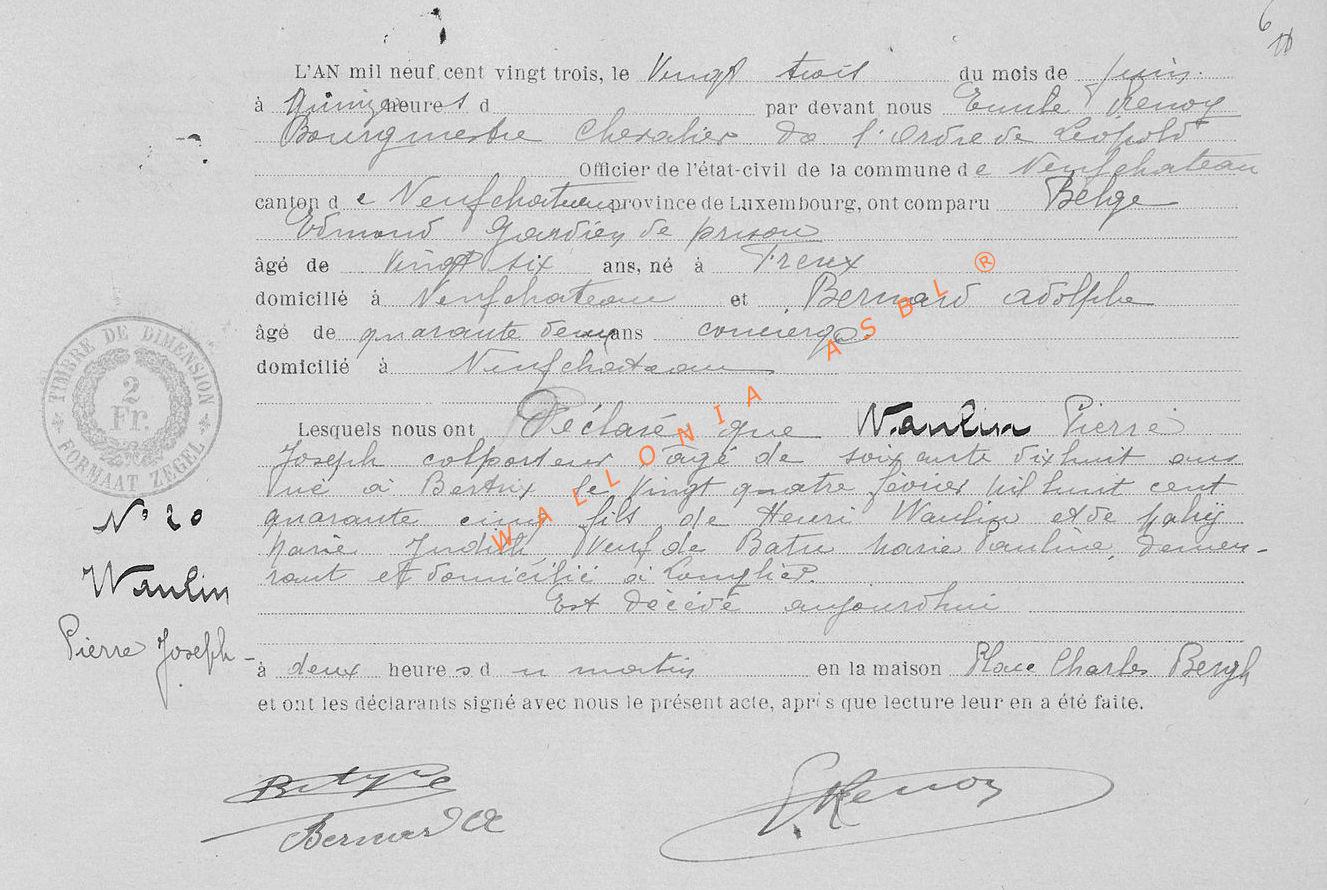 6
L'AN mil neuf cent vingt trois, le Vingt trois du mois de juin
à Quinze heures d par devant nous Emile
Bourgmestre Chevalier de l'Ordre de Léopold
Officier de l'état-civil de la commune de Neufchateau
canton de Neufchateau province de Luxembourg, ont comparu
Edmond Gardien de prison
âgé de vingt six ans, né à Freux
domicilié à Neufchateau et Bernard Adolphe
âgé de quarante deux ans concierge
domicilié à Neufchateau
Lesquels nous ont Déclaré que Waulin Pierre
Joseph colporteur, âgé de soixante dix huit ans
né à Bertrix le vingt quatre février mil huit cent
quarante cinq fils de Henri Waulin et de
Marie Judith, Veuf de Marie Pauline, demeu-
rant et domicilié à Longlier.
Est décédé aujourdhui
à deux heures du matin en la maison Place Charles Bergh
et ont les déclarants signé avec nous le présent acte, après que lecture leur en a été faite.
TIMBRE DE DIMENSION
2
Fr.
FORMAAT ZEGEL
N° 20
Waulin
Pierre Joseph
Bernard A
WALLONIA ASBL ®